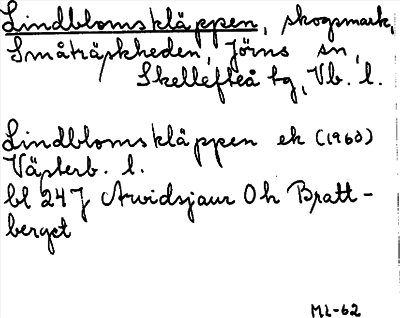 Lindblomskläppen, skogsmark,
Småträskheden, Jörns sn,
Skellefteå tg, Vb. l.
Lindblomskläppen ek (1960)
Västerb. l.
bl 24 J Arvidsjaur 0 h Bratt-
berget
ML-62